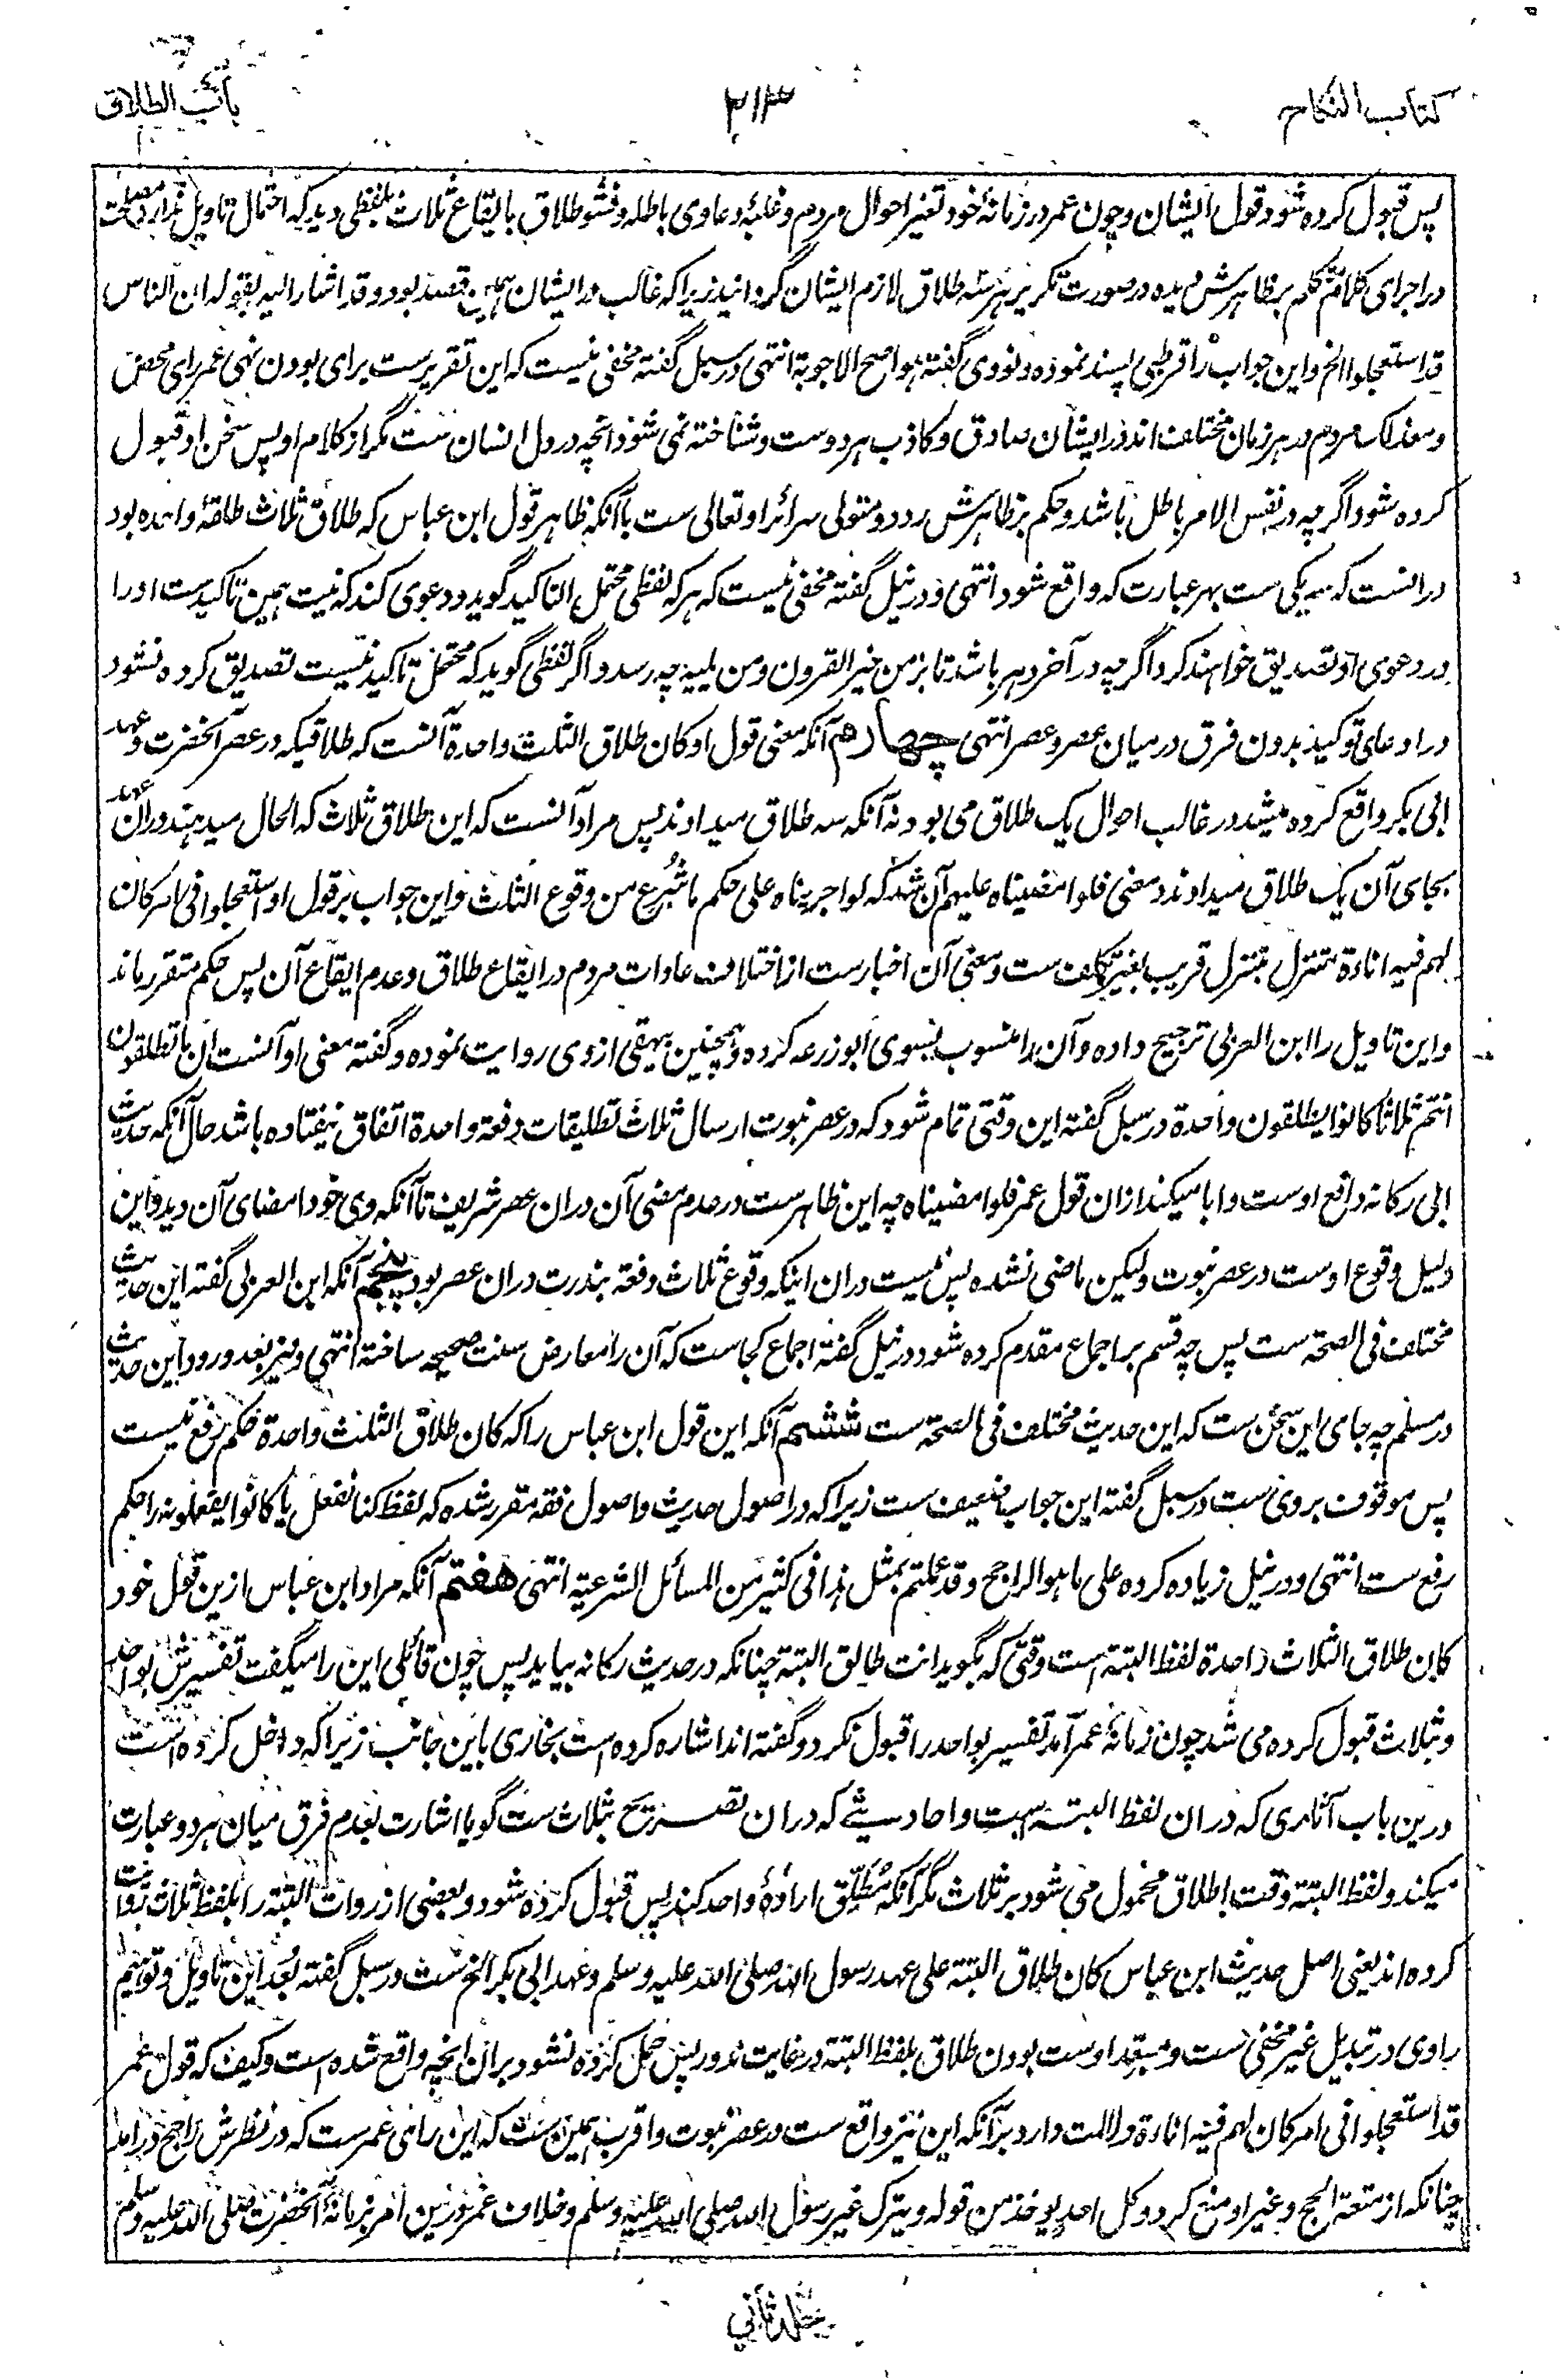 کتاب النکاح
۲۱۳
باب الطلاق
پس قبول کرده شود قول ایشان و چون عمر در زمانهٔ خود تغیر احوال مردم و غلبهٔ دعاوی باطله و فشو طلاق با یقاع ثلاث بلفظی دید که احتمال تاویل ندارد مصلحت
در اجرای کلام متکلم بر ظاهرش دیده در صورت تکریر هر سه طلاق لازم ایشان گردانید زیرا که غالب در ایشان همین قصد بود و قد اشار الیه بقوله ان الناس
قد استعجلوا الخ و این جواب را قرطبی پسند نموده و نووی گفته هو اصح الاجوبة انتهی در سبل گفته مخفی نیست که این تقریرست برای بودن نهی عمر رای محض
و معذلک مردم در هر زمان مختلف اند در ایشان صادق و کاذب هر دوست و شناخته نمی شود انچه در دل انسان ست مگر از کلام او پس سخن او قبول
کرده شود اگرچه در نفس الامر باطل باشد و حکم بر ظاهرش رود و متولی سرائر او تعالی ست با آنکه ظاهر قول ابن عباس که طلاق ثلاث طلقة واحده بود
در انست که به یکی ست بهر عبارت که واقع شود انتهی و در نیل گفته مخفی نیست که هر که لفظی محتمل التاکید گوید و دعوی کند که نیت همین تاکیدست او را
در دعوی او تصدیق خواهند کرد اگرچه در آخر دهر باشد تا بزمن خیر القرون و من یلیه چه رسد و اگر لفظی گوید که محتمل تاکید نیست تصدیق کرده نشود
در ادعای توکید بدون فرق در میان عصر و عصر انتهی چهارم آنکه معنی قول او کان طلاق الثلث واحدة آنست که طلاقیکه در عصر آنحضرت و عهد
ابی بکر واقع کرده میشد در غالب احوال یک طلاق می بود نه آنکه سه طلاق میدادند پس مراد آنست که این طلاق ثلاث که الحال میدهند دران عهد
بجای آن یک طلاق میدادند و معنی فلو امضیناه علیهم آن شد که لو اجریناه علی حکم ما شُرع من وقوع الثلث و این جواب بر قول او استعجلوا فی امر کان
لهم فیه اناءة متنزل بتنزل قریب بغیر تکلف ست و معنی آن اخبارست از اختلاف عادات مردم در ایقاع طلاق و عدم ایقاع آن پس حکم متقرر ماند
و این تاویل را ابن العربی ترجیح داده و آن را منسوب بسوی ابو زرعه کرده و همچنین بیهقی از وی روایت نموده و گفته معنی او آنست ان ما تطلقون
انتم ثلاثا کانوا یطلقون واحدة در سبل گفته این وقتی تمام شود که در عصر نبوت ارسال ثلاث تطلیقات دفعة واحدة اتفاق نیفتاده باشد حال آنکه حدیث
ابی رکانه دافع اوست و ابا میکند ازان قول عمر فلو امضیناه چه این ظاهرست در عدم مضی آن دران عصر شریف تا آنکه وی خود امضای آن دید و این
دلیل وقوع اوست در عصر نبوت ولیکن ماضی نشده پس نیست دران اینکه وقوع ثلاث دفعة بندرت دران عصر بود پنجم آنکه ابن العربی گفته این حدیث
مختلف فی الصحة ست پس چه قسم بر اجماع مقدم کرده شود در نیل گفته اجماع کجاست که آن را معارض سنت صحیحه ساخته انتهی و نیز بعد ورود این حدیث
در مسلم چه جای این سخن ست که این حدیث مختلف فی الصحة ست ششم آنکه این قول ابن عباس را که کان طلاق الثلث واحدة حکم رفع نیست
پس موقوف بروی ست در سبل گفته این جواب ضعیف ست زیرا که در اصول حدیث و اصول فقه مقرر شده که لفظ کنا نفعل یا کانوا یفعلونه را حکم
رفع ست انتهی و در نیل زیاده کرده علی ما هو الراجح و قد علمتم بمثل هذا فی کثیر من المسائل الشرعیة انتهی هفتم آنکه مراد ابن عباس ازین قول خود
کان طلاق الثلاث واحدة لفظ البتة است وقتی که بگوید انت طالق البتة چنانکه در حدیث رکانه بیاید پس چون قائلی این را میگفت تفسیرش بواحد
و بثلاث قبول کرده می شد چون زمانهٔ عمر آمد تفسیر بواحد را قبول نکرد و گفته اند اشاره کرده است بخاری باین جانب زیرا که داخل کرده است
درین باب آثاری که دران لفظ البتة است و احادیثے که دران تصریح بثلاث ست گویا اشارت بعدم فرق میان هر دو عبارت
میکند و لفظ البتة وقت اطلاق محمول می شود بر ثلاث مگر آنکه مُطلّق ارادهٔ واحد کند پس قبول کرده شود و بعضی از روات البتة را بلفظ ثلاث روایت
کرده اند یعنی اصل حدیث ابن عباس کان طلاق البتة علی عهد رسول الله صلی الله علیه وسلم و عهد ابی بکر الخ ست در سبل گفته بُعد این تاویل و توهیم
راوی در تبدیل غیر مخفی ست و مبعّد اوست بودن طلاق بلفظ البتة در غایت ندور پس حمل کرده نشود بران انچه واقع شده است و کیف که قول عمر
قد استعجلوا فی امر کان لهم فیه اناءة دلالت دارد بر آنکه این نیز واقع ست در عصر نبوت و اقرب همین ست که این رای عمرست که در نظرش راجح درآمد
چنانکه از متعة الحج و غیر او منع کرد و کل احد یوخذ من قوله و یترک غیر رسول الله صلی الله علیه وسلم و خلاف عمر درین امر بزمانهٔ آنحضرت صلی الله علیه وسلم
جلد ثانی